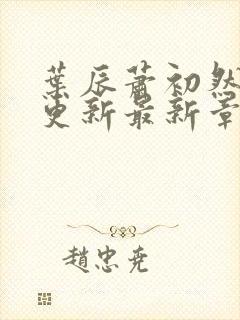 葉辰蕭初然
更新最新章
趙忠堯